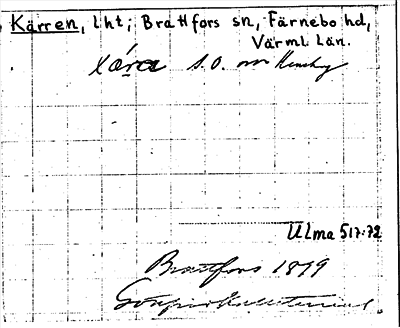 Kärren, Lht; Brattfors sn, Färnebo hd,
Värml. län.
S.O. om
Ulma 517:72
Brattfors 1899